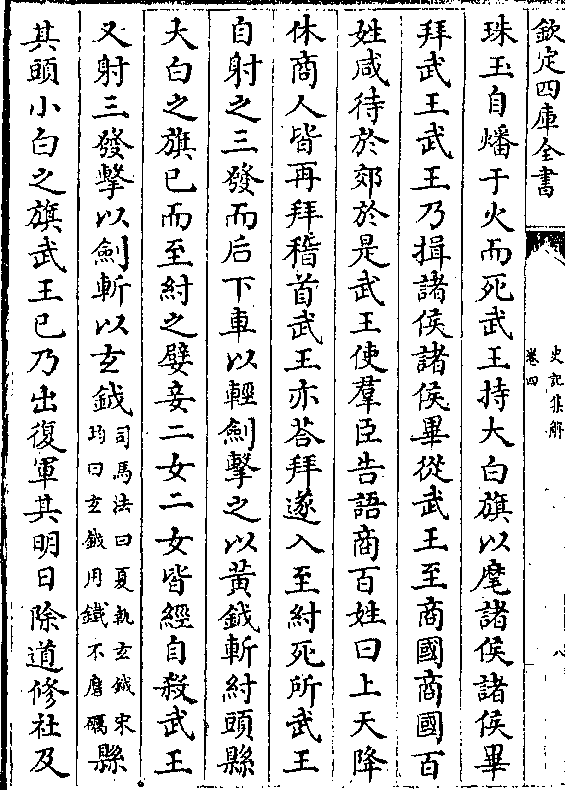 欽定四庫全書
史記集解
卷四
八
珠玉自燔于火而死武王持大白旗以麾諸侯諸侯畢
拜武王武王乃揖諸侯諸侯畢從武王至商國商國百
姓咸待於郊於是武王使羣臣告語商百姓曰上天降
休商人皆再拜稽首武王亦荅拜遂入至紂死所武王
自射之三發而后下車以輕劍擊之以黄鉞斬紂頭縣
大白之旗已而至紂之嬖妾二女二女皆經自殺武王
又射三發擊以劍斬以玄鉞司馬法曰夏執玄鉞宋均曰玄鉞用鐵不磨礪縣
其頭小白之旗武王已乃出復軍其明日除道修社及